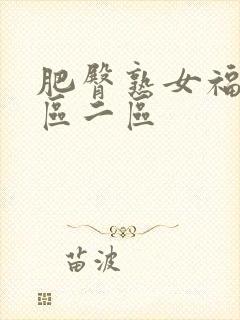 肥臀熟女福
區二區
苗波